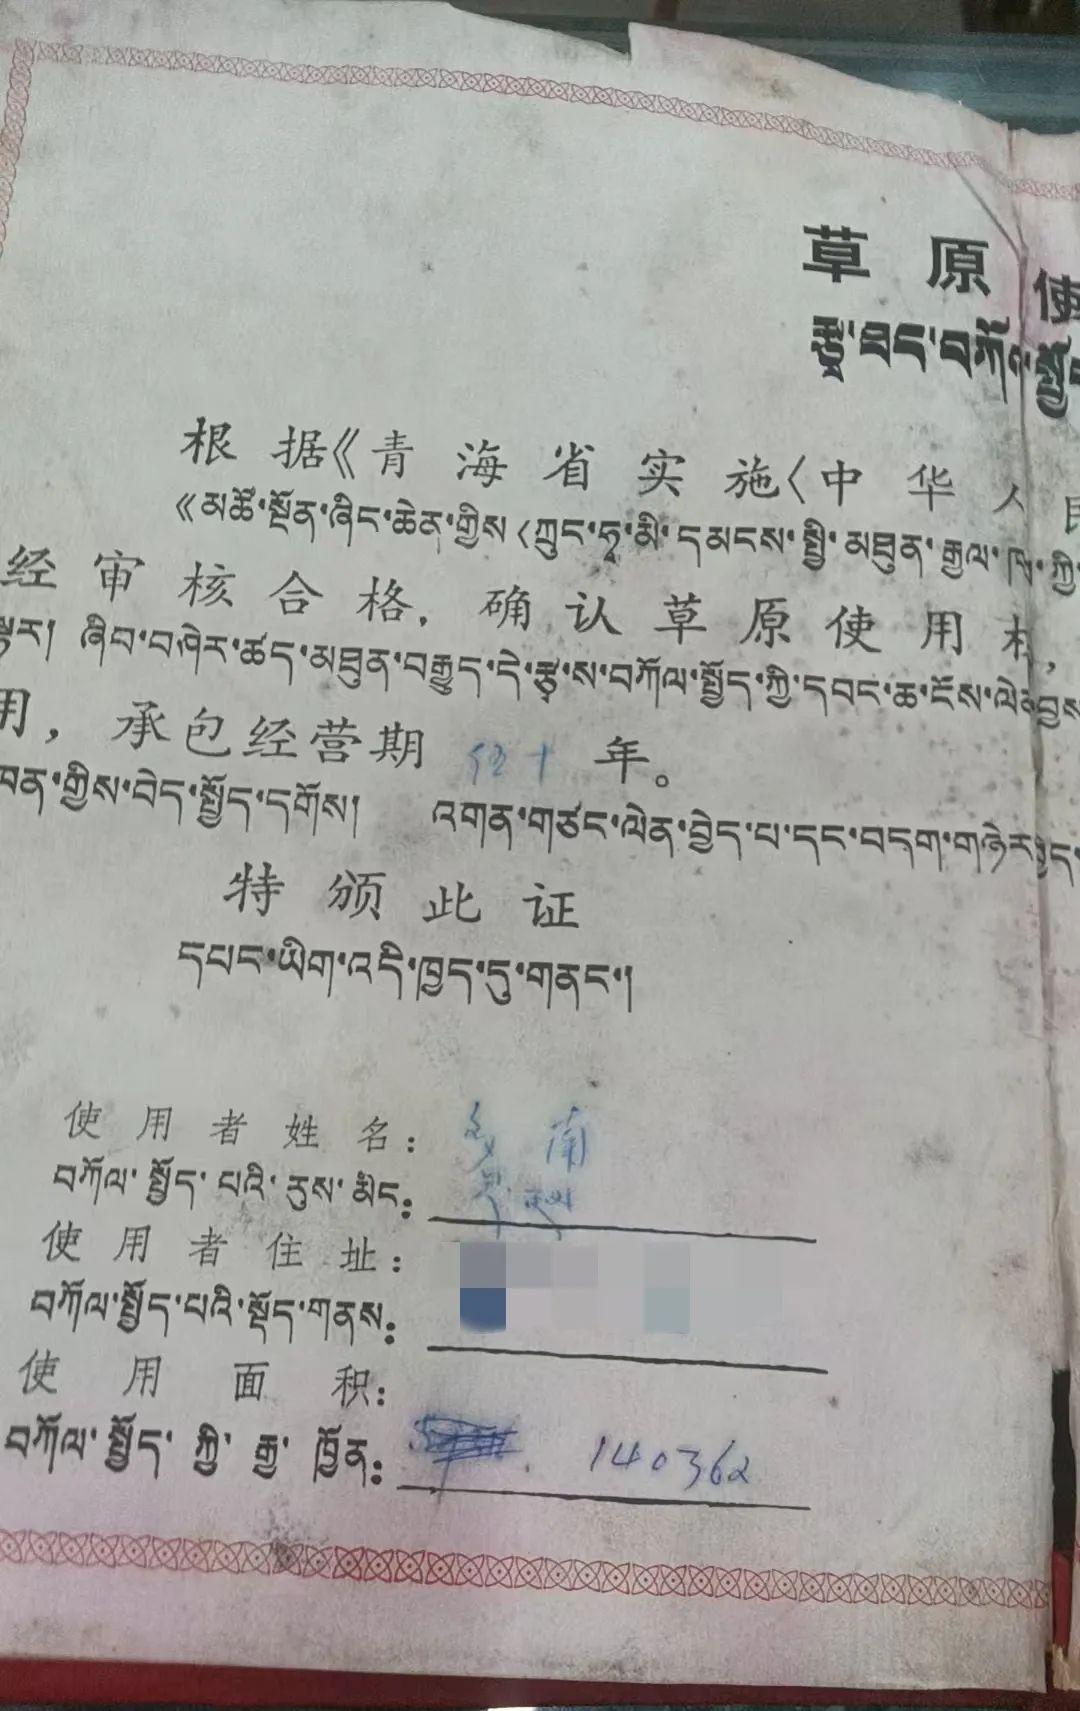 草原使
རྩྭ་ཐང་བཀོལ་སྤྱོད
根据《青海省实施〈中华人民
《མཚོ་སྔོན་ཞིང་ཆེན་གྱིས〈ཀྲུང་ཧྭ་མི་དམངས་སྤྱི་མཐུན་རྒྱལ་ཁབ་ཀྱི་
经审核合格，确认草原使用
ལྟར། ཞིབ་བཤེར་ཚད་མཐུན་བརྒྱུད་དེ་རྩྭ་ས་བཀོལ་སྤྱོད་ཀྱི་དབང་ཆ་ངོས་ལེན་བྱས
用，承包经营期 十年。
ཁན་གྱིས་བེད་སྤྱོད་དགོས། འགན་གཙང་ལེན་བྱེད་པ་དང་བདག་གཉེར་བྱེད་
特颁此证
དཔང་ཡིག་འདི་ཁྱད་དུ་གནང་།
使用者姓名： 南
བཀོལ་སྤྱོད་པའི་རུས་མིང：
使用者住址：
བཀོལ་སྤྱོད་པའི་སྡོད་གནས：
使用面积：
བཀོལ་སྤྱོད་ཀྱི་རྒྱ་ཁྱོན： 140362